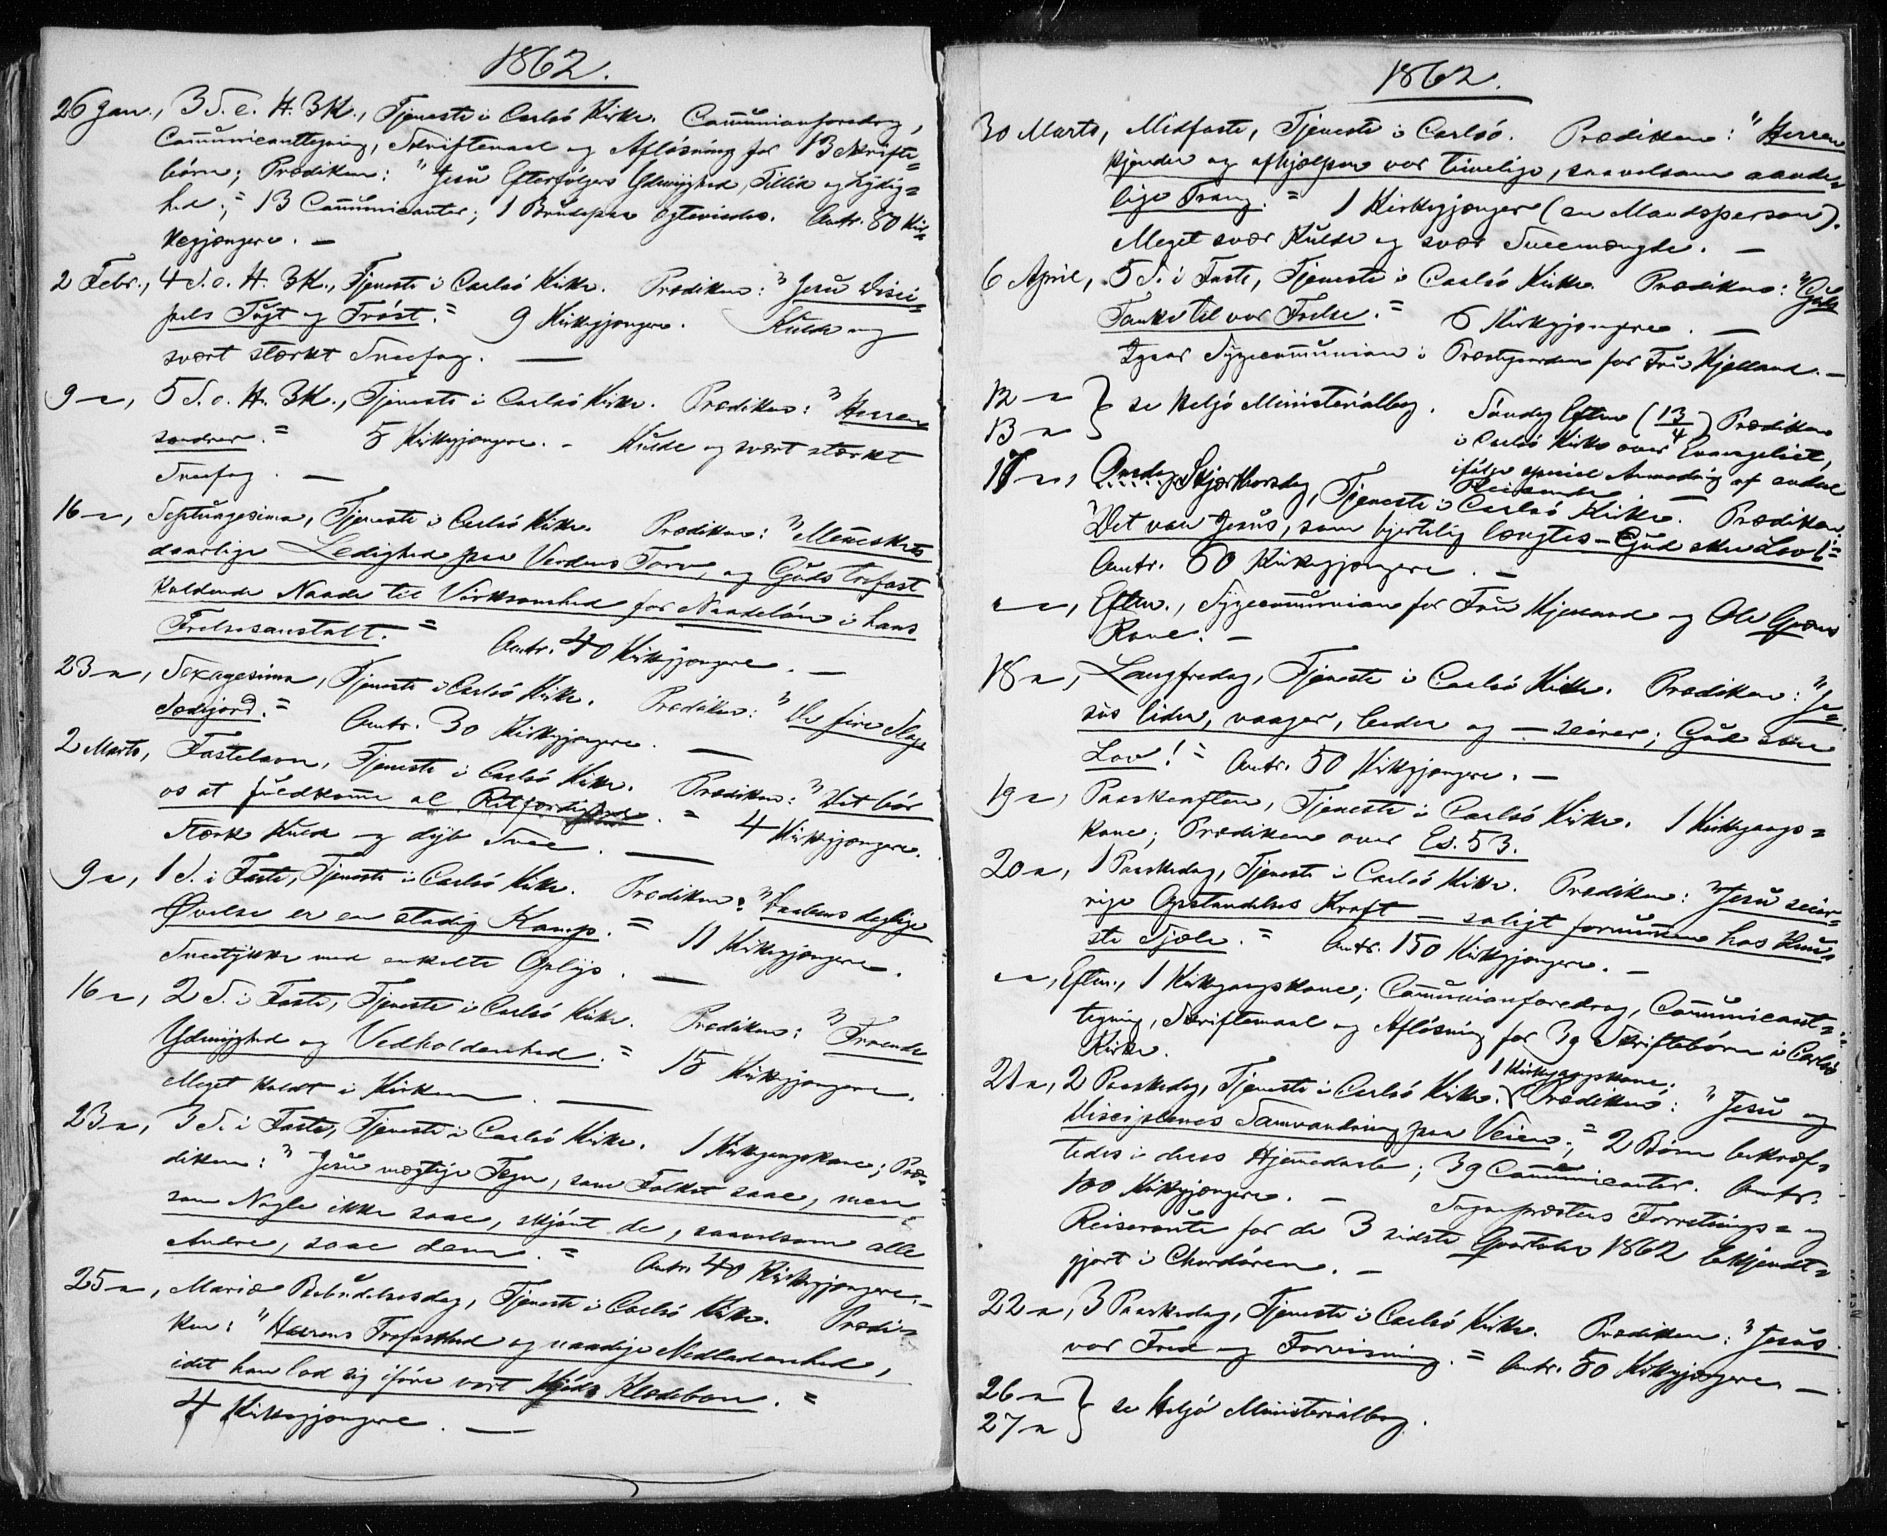 1862.
26 Jan., 3 S. e. H. 3 K., Tjeneste i Carlsö Kirke. Communionforedrag,
Communicanttegning, Skriftemaal og Aflösning for 13 Skrifte-
börn; Prædiken: "Jesu Efterfölgers Ydmyghed, Tillid og Lydig-
hed."; 13 Communicanter; 1 Brudepar ægteviedes. Antr. 80 Kir-
kegjængere. —
2 Febr., 4 S. e. H. 3 K., Tjeneste i Carlsö Kirke. Prædiken: "Jesu Disci-
pels Frygt og Tröst." 9 Kirkegjængere. Kulde og
svært stærkt Sneefog. —
9 –, 5 S. e. H. 3 K., Tjeneste i Carlsö Kirke. Prædiken: "Herren
sondrer." 5 Kirkegjængere. – Kulde og svært stærkt
Sneefog. —
16 –, Septuagesima, Tjeneste i Carlsö Kirke. Prædiken: "Menneskets
daarlige Ledighed paa Verdens Torv, og Guds trofast
kaldende Naade til Virksomhed for Naadelön i hans
Frelsesanstalt." Antr. 40 Kirkegjængere. —
23 –, Sexagesima, Tjeneste i Carlsö Kirke. Prædiken: "De fire Slags
Sædejord." Antr. 30 Kirkegjængere. —
2 Marts, Fastelavn, Tjeneste i Carlsö Kirke. Prædiken: "Det bör
os at fuldkomme al Retfærdighed." 4 Kirkegjængere.
Stærk Kulde og dyb Snee. —
9 –, 1 S. i Faste, Tjeneste i Carlsö Kirke. Prædiken: "Troens daglige
Øvelse er en stadig Kamp." 11 Kirkegjængere.
Sneetykke med enkelte Oplys. —
16 –, 2 S. i Faste, Tjeneste i Carlsö Kirke. Prædiken: "Troende
Ydmyghed og Vedholdenhed." 15 Kirkegjængere.
Meget koldt i Kirken. —
23 –, 3 S. i Faste, Tjeneste i Carlsö Kirke. 1 Kirkegangskone; Præ-
diken: "Jesu mægtige Tegn, som Folket saae, men
som Nogle ikke saae, skjönt de, saavelsom alle
Andre, saae dem." Antr. 40 Kirkegjængere. –
25 –, Mariæ Bebudelsesdag, Tjeneste i Carlsö Kirke. Prædi-
ken: "Herrens Trofasthed og naadige Nedladenhed,
idet han lod sig iföre vort Kjöds Klædebon."
4 Kirkegjængere. —
1862.
30 Marts, Midfaste, Tjeneste i Carlsö. Prædiken: "Herren
kjender og afhjælper vor timelige, saavelsom aande-
lige Trang." 1 Kirkegjænger (en Mandsperson).
Meget svær Kulde og svær Sneemængde. —
6 April, 5 S. i Faste, Tjeneste i Carlsö Kirke. Prædiken: "Guds
Tanke til vor Frelse." 6 Kirkegjængere. —
Igaar Sygecommunion i Præstgaarden for Fru Kjelland. –
12 –
13 – } se Helgö Ministerialbog. Söndag Efterm. (13/4) Prædiken
i Carlsö Kirke over Evangeliet,
ifölge speciel Anmodning af endeel
Reisende
17 –, Skjærthorsdag, Tjeneste i Carlsö Kirke. Prædiken:
"Det var Jesus, som hjertelig længtes – Gud skee Lov!"
Antr. 60 Kirkegjængere. —
– –, Efterm., Sygecommunion for Fru Kjelland og Ole
Kone. –
18 –, Langfredag, Tjeneste i Carlsö Kirke. Prædiken: "Je-
sus lider, vaager, beder og – seirer; Gud skee
Lov!" Antr. 50 Kirkegjængere. –
19 –, Paaskeaften, Tjeneste i Carlsö Kirke. 1 Kirkegangs-
kone; Prædiken over Es. 53.
20 –, 1 Paaskedag, Tjeneste i Carlsö Kirke. Prædiken: "Jesu seier-
rige Opstandelses Kraft – saligt fornummen hos
Sjæle." Antr. 150 Kirkegjængere. –
– –, Efterm., 1 Kirkegangskone; Communionforedrag, Communicant-
tegning, Skriftemaal og Aflösning for 39 Skriftebörn i Carlsö
Kirke.
21 –, 2 Paaskedag, Tjeneste i Carlsö Kirke. 1 Kirkegangskone; Prædiken: "Jesu og
Disciplenes Samvandring paa Veien."; 2 Börn bekræf-
tedes i deres Hjemmedaab; 39 Communicanter. Antr.
100 Kirkegjængere. – Sognepræstens Forretnings- og
Reiseroute for de 3 sidste Qvartaler 1862 bekjendt-
gjort i Chordören. –
22 –, 3 Paaskedag, Tjeneste i Carlsö Kirke. Prædiken: "Jesus
vor Fred og Forvisning." Antr. 50 Kirkegjængere. –
26 –
27 – } se Helgö Ministerialbog.